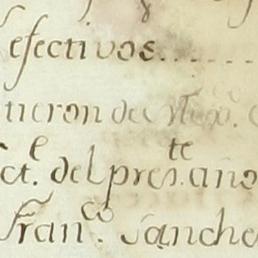 efectivos......
ueron de Mexo.
ct.e del pres.te año
Fran.co Sanche